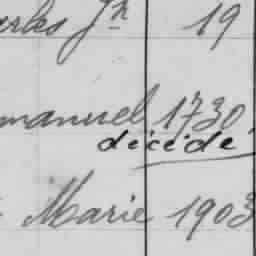 arles Jr 19
manuel 1730
décidé
Marie 1903